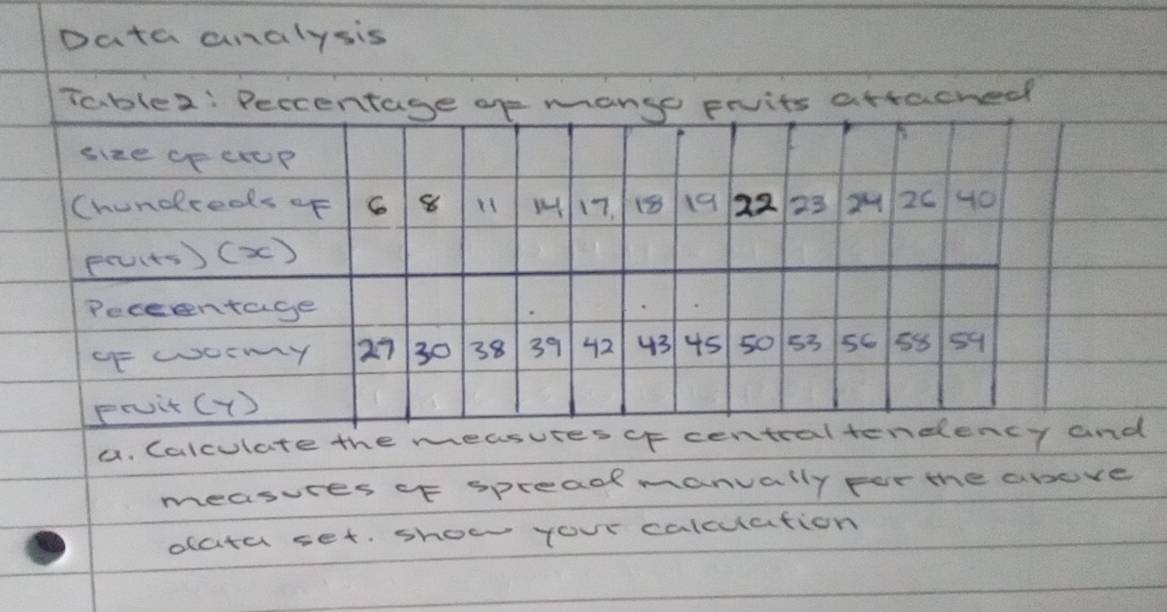 Data analysis
Table2: Percentage of mango fruits attached
size of crop
(hundreds of 6 8 11 14 17. 18 19 22 23 24 26 40
fruits) (x)
Percentage
of wormy 27 30 38 39 42 43 45 50 53 56 58 59
fruit (Y)
a. Calculate the measures of central tendency and
measures of spread manually for the above
data set. show your calculation